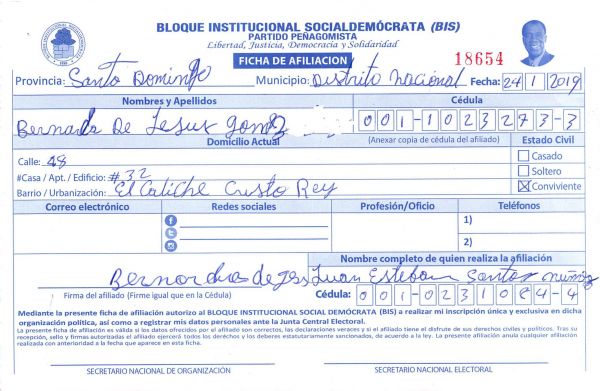 BLOQUE INSTITUCIONAL SOCIALDEMÓCRATA (BIS)
PARTIDO PEÑAGOMISTA
Libertad, Justicia, Democracia y Solidaridad
FICHA DE AFILIACION
18654
Provincia: Santo Domingo Municipio: Distrito nacional Fecha: 24 1 2019
Nombres y Apellidos Cédula
De Jesus gomez 001-1023273-3
Domicilio Actual (Anexar copia de cédula del afiliado) Estado Civil
Calle: 48 Casado
#Casa / Apt. / Edificio: #32 Soltero
Barrio / Urbanización: El Caliche Cristo Rey Conviviente
Correo electrónico Redes sociales Profesión/Oficio Teléfonos
1)
2)
Nombre completo de quien realiza la afiliación
de Jesus Juan Esteban Santos nuñez
Firma del afiliado (Firme igual que en la Cédula) Cédula: 001-0231084-4
Mediante la presente ficha de afiliación autorizo al BLOQUE INSTITUCIONAL SOCIAL DEMÓCRATA (BIS) a realizar mi inscripción única y exclusiva en dicha
organización política, así como a registrar mis datos personales ante la Junta Central Electoral.
La presente ficha de afiliación es válida si los datos ofrecidos por el afiliado son correctos, las declaraciones veraces y si el afiliado tiene el disfrute de sus derechos civiles y políticos. Tras su
recepción, sello y firmas autorizadas el afiliado ejercerá todos los derechos y los deberes estatutariamente sancionados, de acuerdo a la ley. La presente afiliación anula cualquier afiliación
realizada con anterioridad a la fecha que aparece en esta ficha.
SECRETARIO NACIONAL DE ORGANIZACIÓN SECRETARIO NACIONAL ELECTORAL